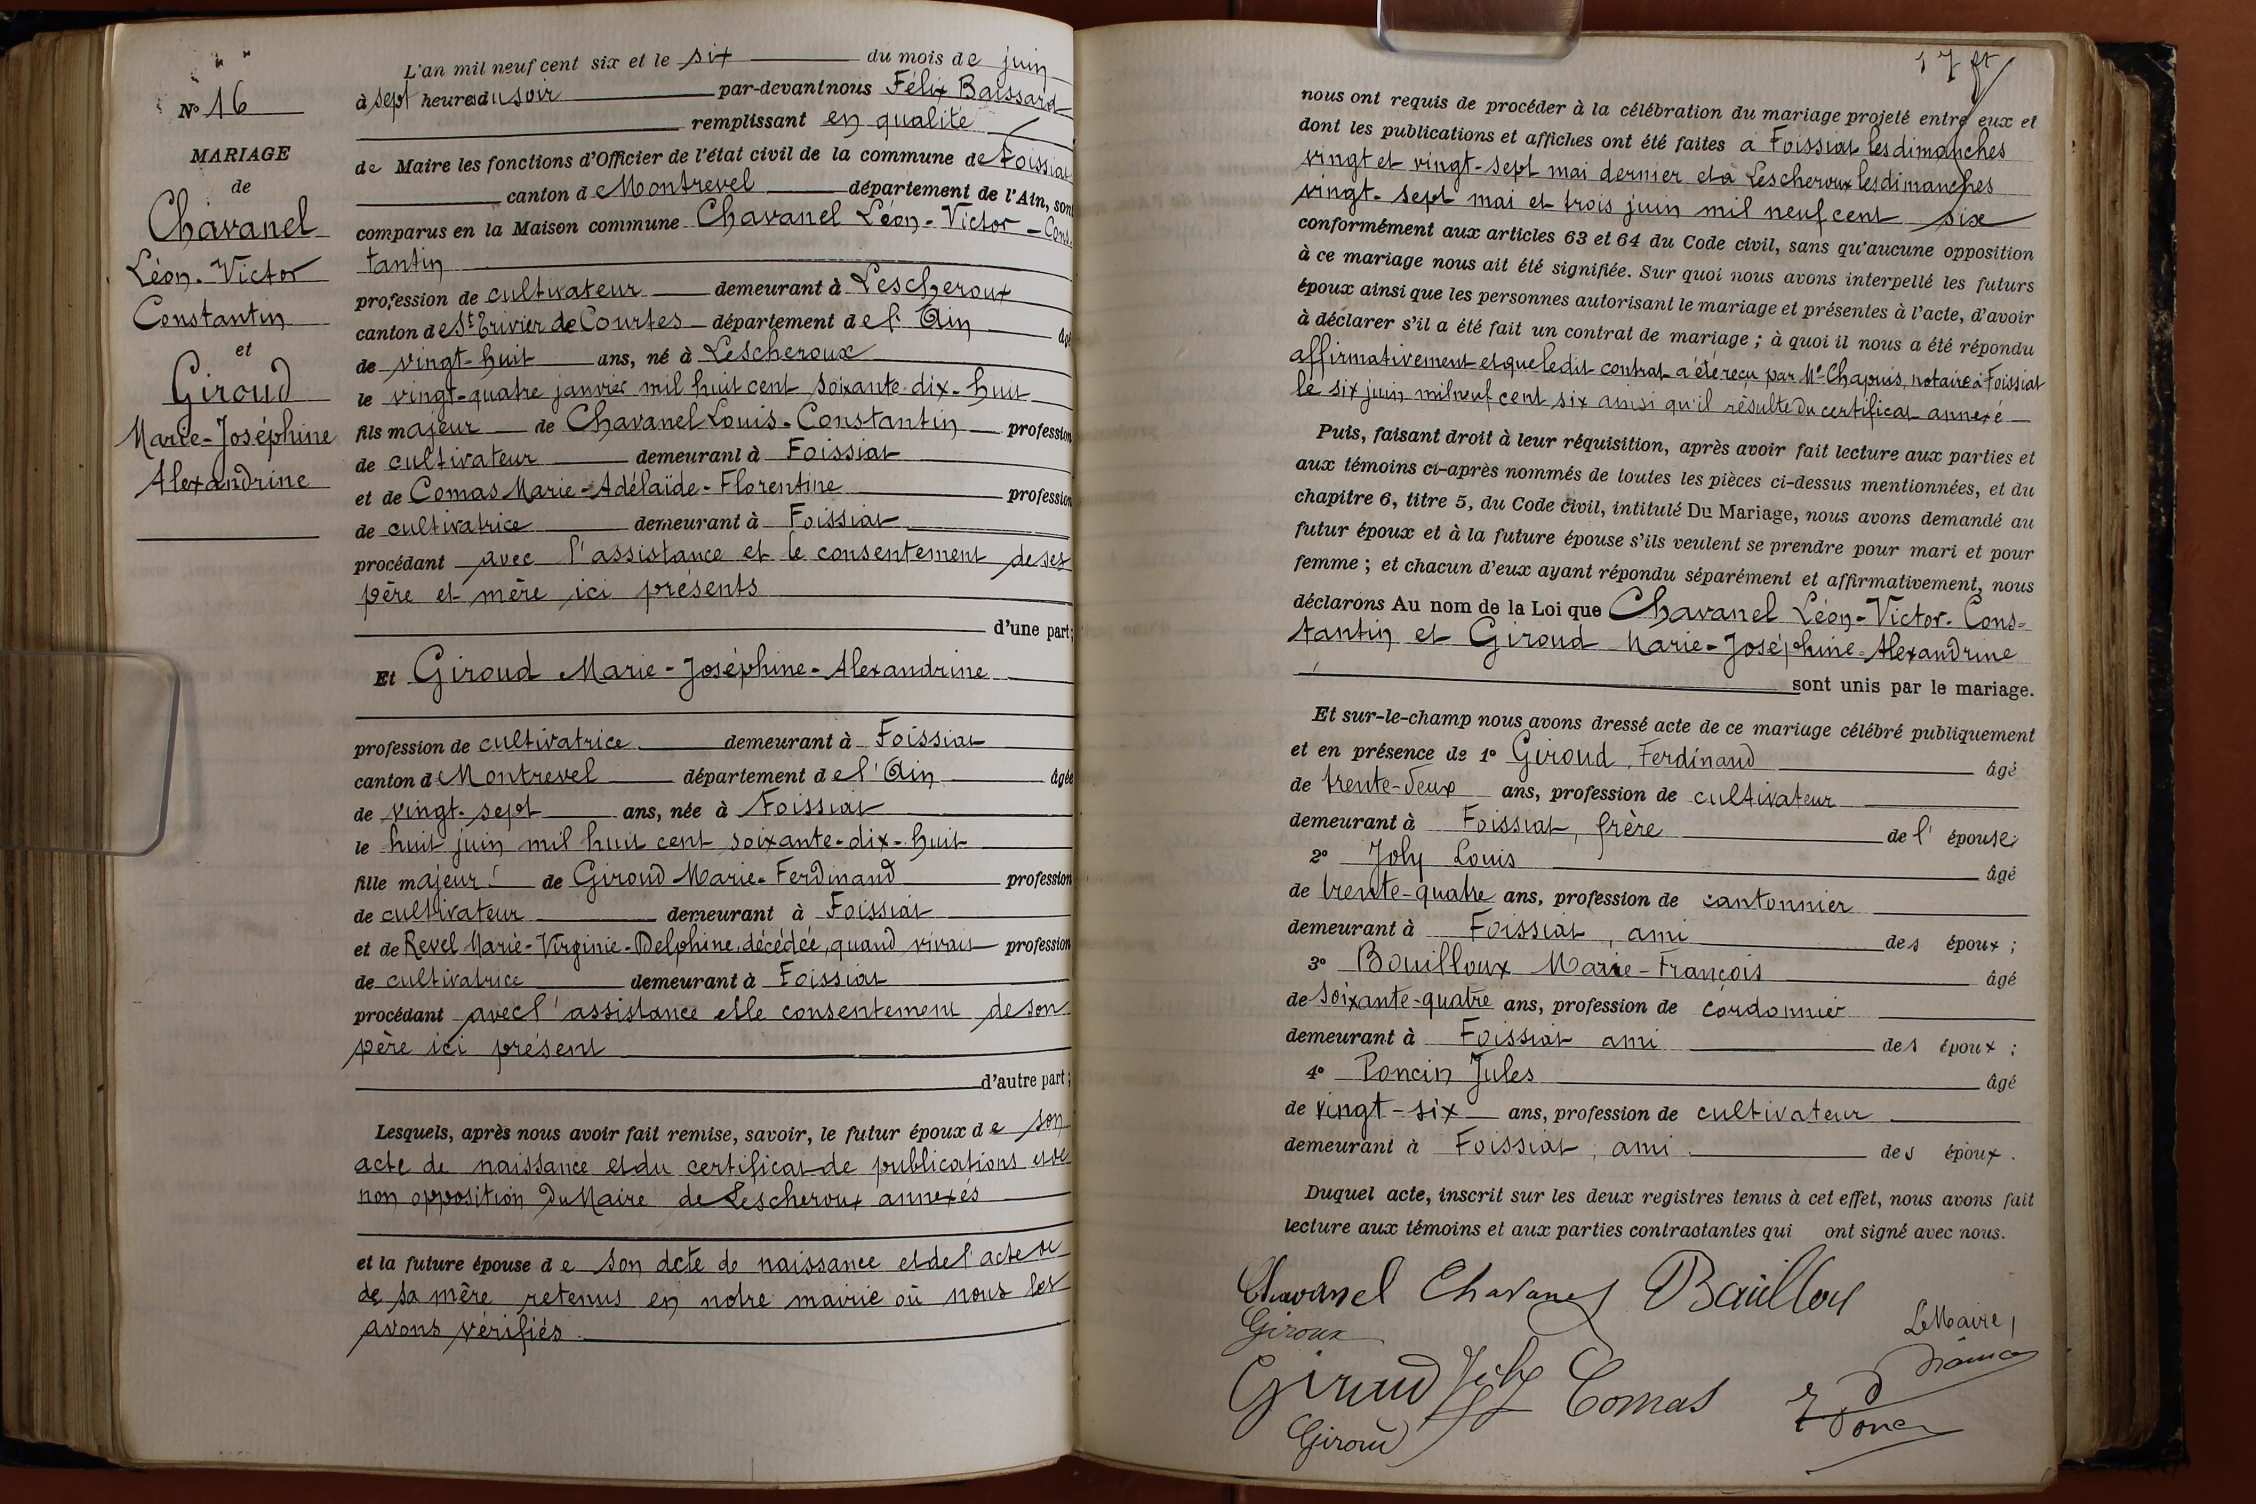 N° 16
MARIAGE
de
Chavanel
Léon-Victor
Constantin
et
Giroud
Marie-Joséphine
Alexandrine
L'an mil neuf cent six et le six du mois de juin
à sept heures du soir par-devant nous Félix Baissard
remplissant en qualité
de Maire les fonctions d'Officier de l'état civil de la commune de Foissiat
canton de Montrevel département de l'Ain, sont
comparus en la Maison commune Chavanel Léon-Victor-Cons-
tantin
profession de cultivateur demeurant à Lescheroux
canton de St Trivier de Courtes département de l'Ain âgé
de vingt-huit ans, né à Lescheroux
le vingt-quatre janvier mil huit cent soixante-dix-huit
fils majeur de Chavanel Louis-Constantin profession
de cultivateur demeurant à Foissiat
et de Comas Marie-Adélaïde-Florentine profession
de cultivatrice demeurant à Foissiat
procédant avec l'assistance et le consentement de ses
père et mère ici présents
d'une part;
Et Giroud Marie-Joséphine-Alexandrine
profession de cultivatrice demeurant à Foissiat
canton de Montrevel département de l'Ain âgée
de vingt-sept ans, née à Foissiat
le huit juin mil huit cent soixante-dix-huit
fille majeure de Giroud Marie-Ferdinand profession
de cultivateur demeurant à Foissiat
et de Revel Marie-Virginie-Delphine, décédée, quand vivait profession
de cultivatrice demeurant à Foissiat
procédant avec l'assistance et le consentement de son
père ici présent
d'autre part;
Lesquels, après nous avoir fait remise, savoir, le futur époux de son
acte de naissance et du certificat de publications et de
non opposition du Maire de Lescheroux annexés
et la future épouse de son acte de naissance et de l'acte de
de sa mère retenus en notre mairie où nous les
avons vérifiés
17
nous ont requis de procéder à la célébration du mariage projeté entre eux et
dont les publications et affiches ont été faites à Foissiat les dimanches
vingt et vingt-sept mai dernier et à Lescheroux les dimanches
vingt-sept mai et trois juin mil neuf cent six
conformément aux articles 63 et 64 du Code civil, sans qu'aucune opposition
à ce mariage nous ait été signifiée. Sur quoi nous avons interpellé les futurs
époux ainsi que les personnes autorisant le mariage et présentes à l'acte, d'avoir
à déclarer s'il a été fait un contrat de mariage; à quoi il nous a été répondu
affirmativement et que ledit contrat a été reçu par Me Chapuis, notaire à Foissiat
le six juin mil neuf cent six ainsi qu'il résulte du certificat annexé
Puis, faisant droit à leur réquisition, après avoir fait lecture aux parties et
aux témoins ci-après nommés de toutes les pièces ci-dessus mentionnées, et du
chapitre 6, titre 5, du Code civil, intitulé Du Mariage, nous avons demandé au
futur époux et à la future épouse s'ils veulent se prendre pour mari et pour
femme; et chacun d'eux ayant répondu séparément et affirmativement, nous
déclarons Au nom de la Loi que Chavanel Léon-Victor-Cons-
tantin et Giroud Marie-Joséphine-Alexandrine
sont unis par le mariage.
Et sur-le-champ nous avons dressé acte de ce mariage célébré publiquement
et en présence de 1° Giroud Ferdinand âgé
de trente-deux ans, profession de cultivateur
demeurant à Foissiat, frère de l'épouse;
2° Joly Louis âgé
de trente-quatre ans, profession de cantonnier
demeurant à Foissiat, ami des époux;
3° Bouilloux Marie-François âgé
de soixante-quatre ans, profession de cordonnier
demeurant à Foissiat ami des époux;
4° Poncin Jules âgé
de vingt-six ans, profession de cultivateur
demeurant à Foissiat, ami des époux.
Duquel acte, inscrit sur les deux registres tenus à cet effet, nous avons fait
lecture aux témoins et aux parties contractantes qui ont signé avec nous.
Chavanel Chavanel Bouilloux
Giroux
Le Maire,
Giroud Joly Comas
Giroud